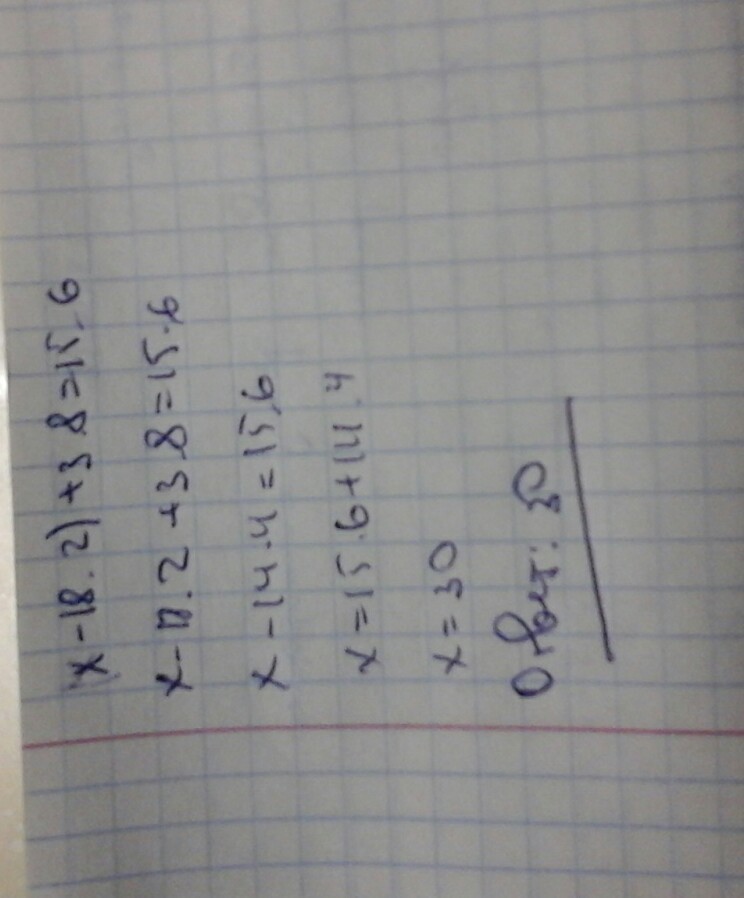 x-18.2)+3.8=15.6
x-18.2+3.8=15.6
x-14.4=15.6
x=15.6+14.4
x=30
Ответ: 30